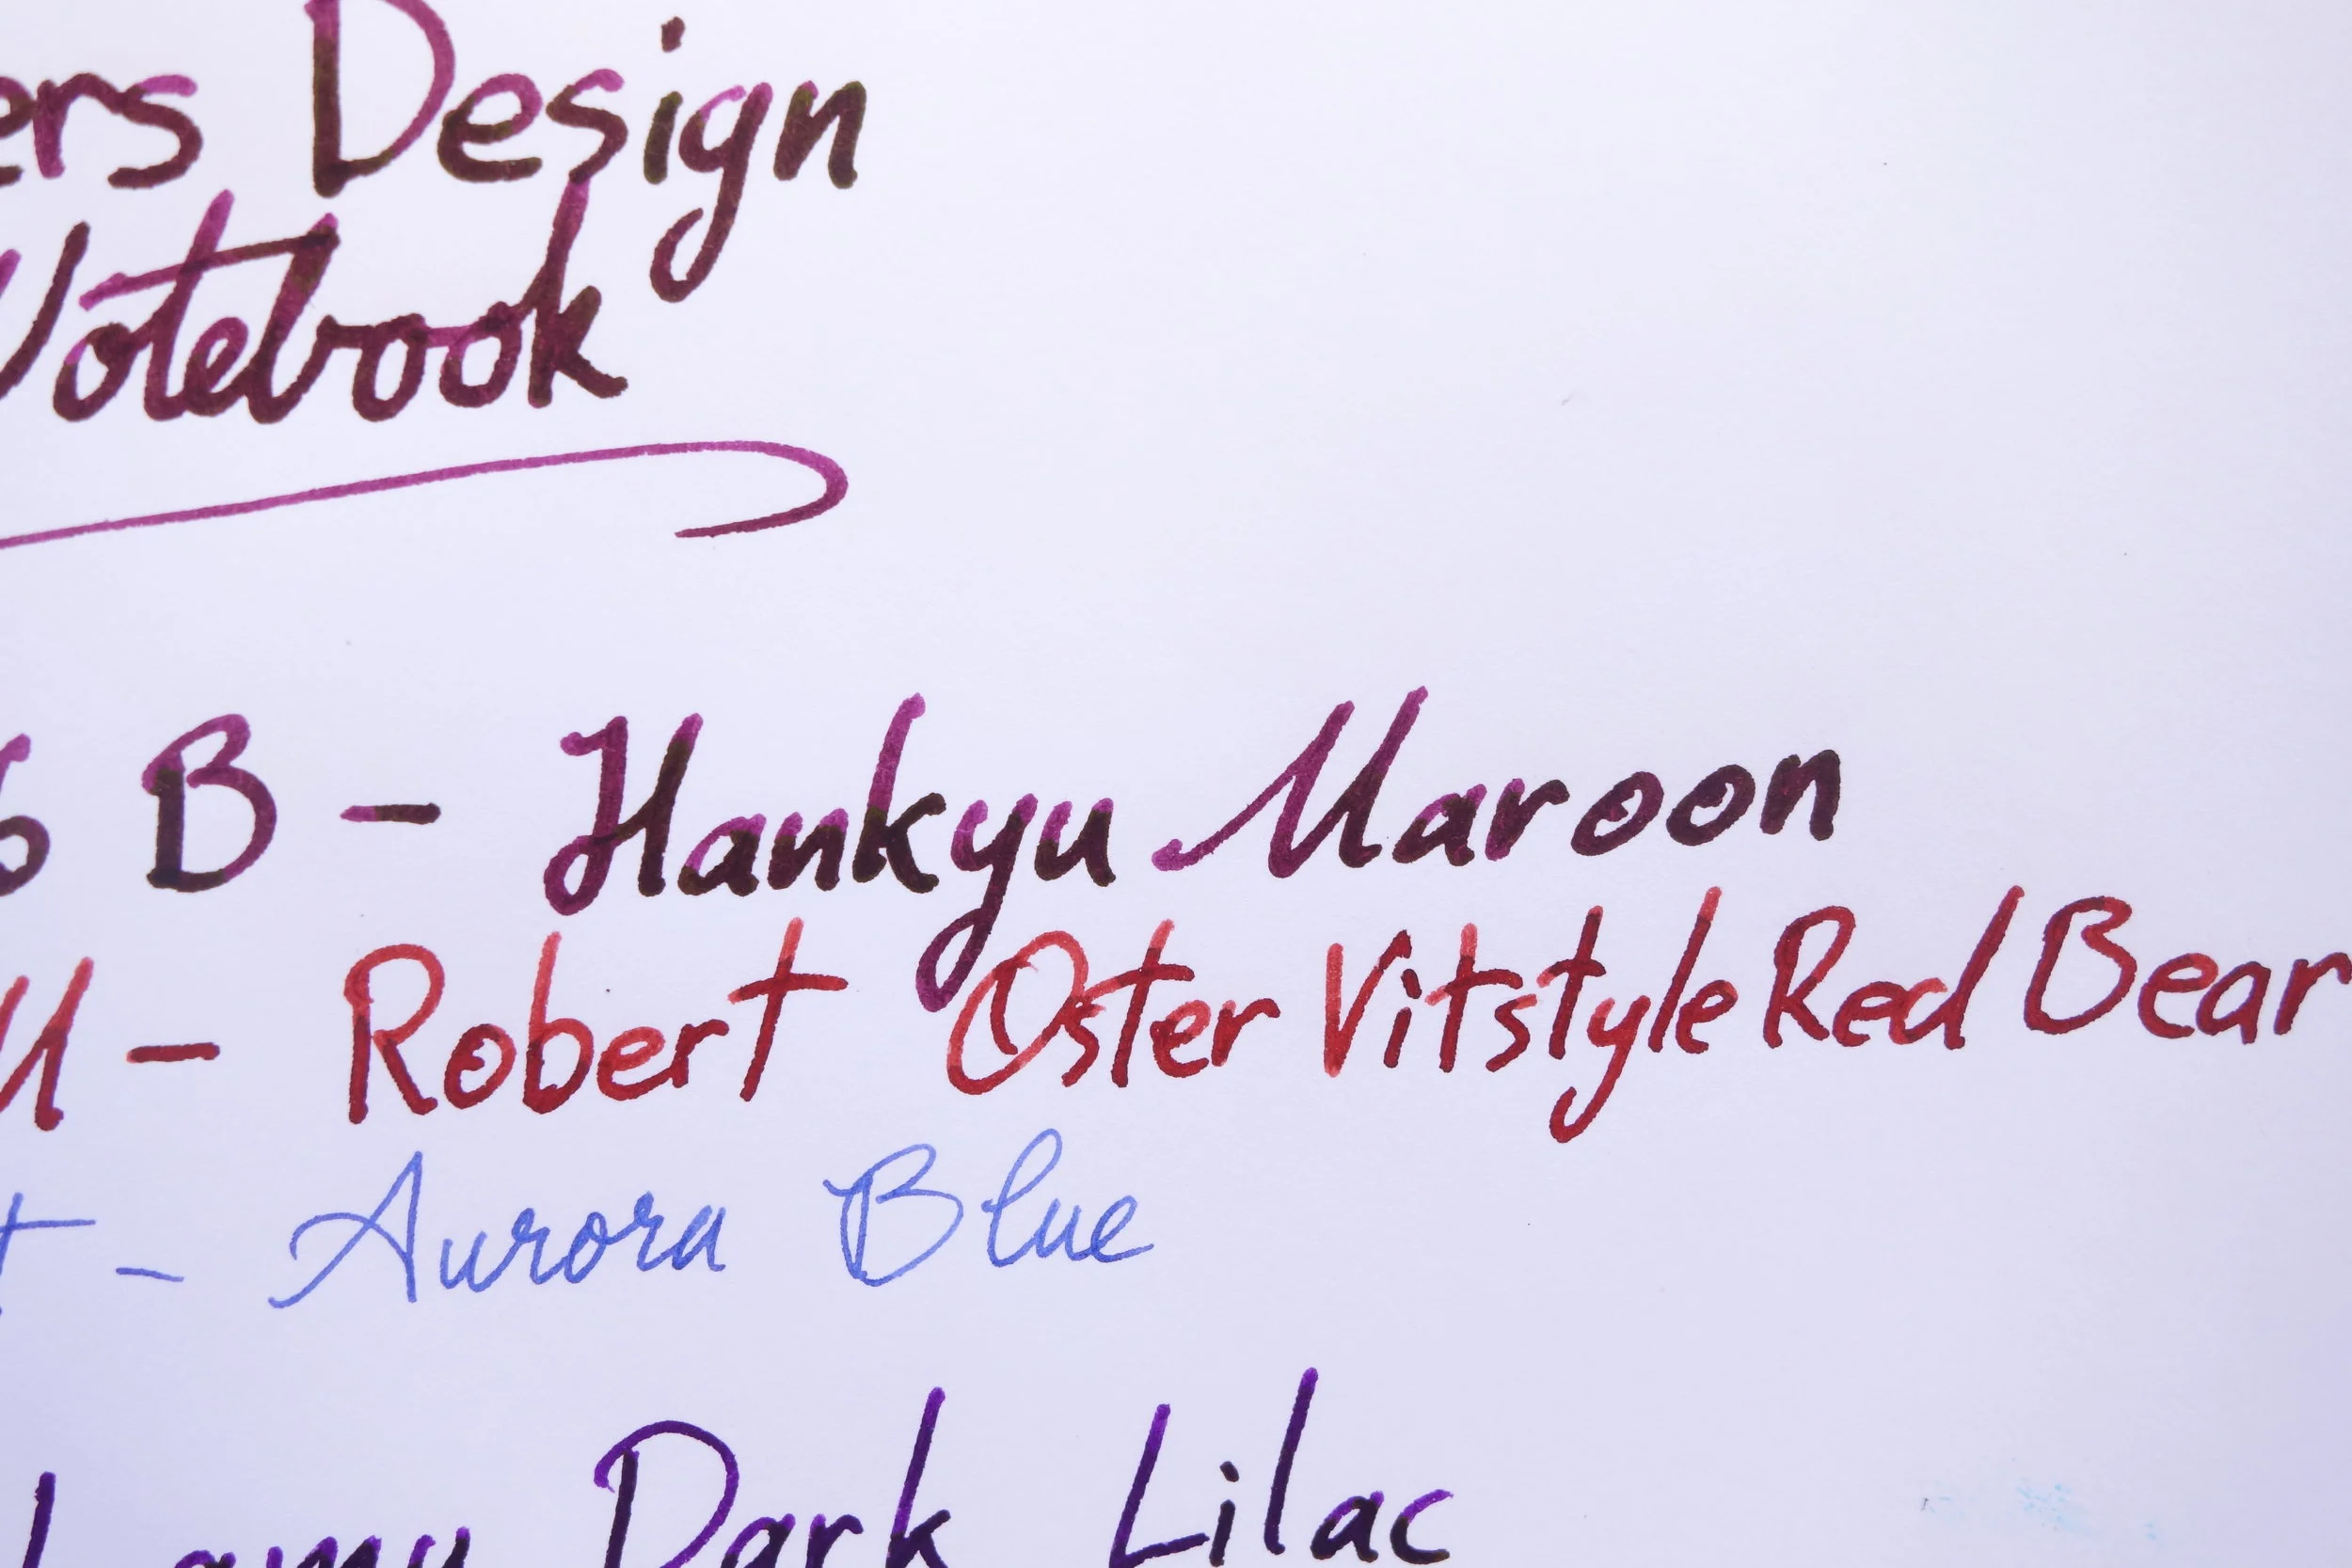 ers Design
Notebook
6 B - Hankyu Maroon
M - Robert Oster Vitstyle Red Bear
- Aurora Blue
Lamy Dark Lilac